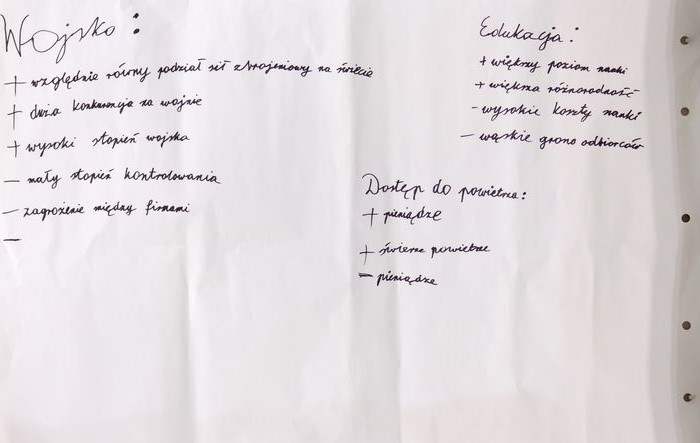 Wojsko:
+ względnie równy podział sił zbrojeniowy na świecie
+ duża konkurencja na wojnie
+ wysoki stopień wojska
- mały stopień kontrolowania
- zagrożenie między firmami
-
Edukacja:
+ większy poziom nauki
+ większa różnorodność
- wysokie koszty nauki
- wąskie grono odbiorców
Dostęp do powietrza:
+ pieniądze
+ świeże powietrze
- pieniądze